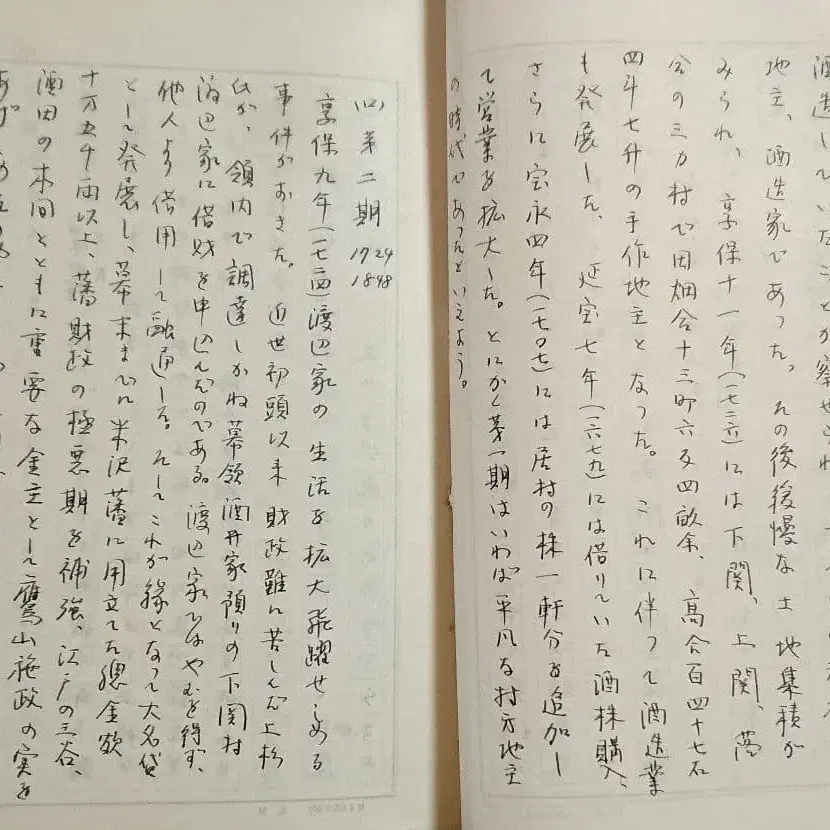 酒造していたことが察せられ
地主、酒造家であった。その後緩慢な土地集積が
みられ、享保十一年(一七二六)には下関、上関、
会の三カ村で田畑合十三町六反四畝余、高合百四十七石
四斗七升の手作地主となった。これに伴って酒造業
も発展した。延宝七年(一六七九)には借りていた酒株購入、
さらに宝永四年(一七〇七)には居村の株一軒分を追加し
て営業を拡大した。とにかく第一期はいわば平凡な村方地主
の時代であったといえよう。
(四)第二期 1724 1848
享保九年(一七二四)渡辺家の生活を拡大飛躍せしめる
事件がおきた。近世初頭以来財政難に苦しんだ上杉
氏が、領内で調達しかね幕領酒井家預りの下関村
渡辺家に借財を申込んだのである。渡辺家ではやむを得ず、
他人より借用して融通した。そしてこれが縁となって大名貸
として発展し、幕末までに米沢藩に用立てた総金額
十万五千両以上、藩財政の極悪期を補強、江戸の三谷、
酒田の本間とともに重要な金主として鷹山施政の実を
あげ